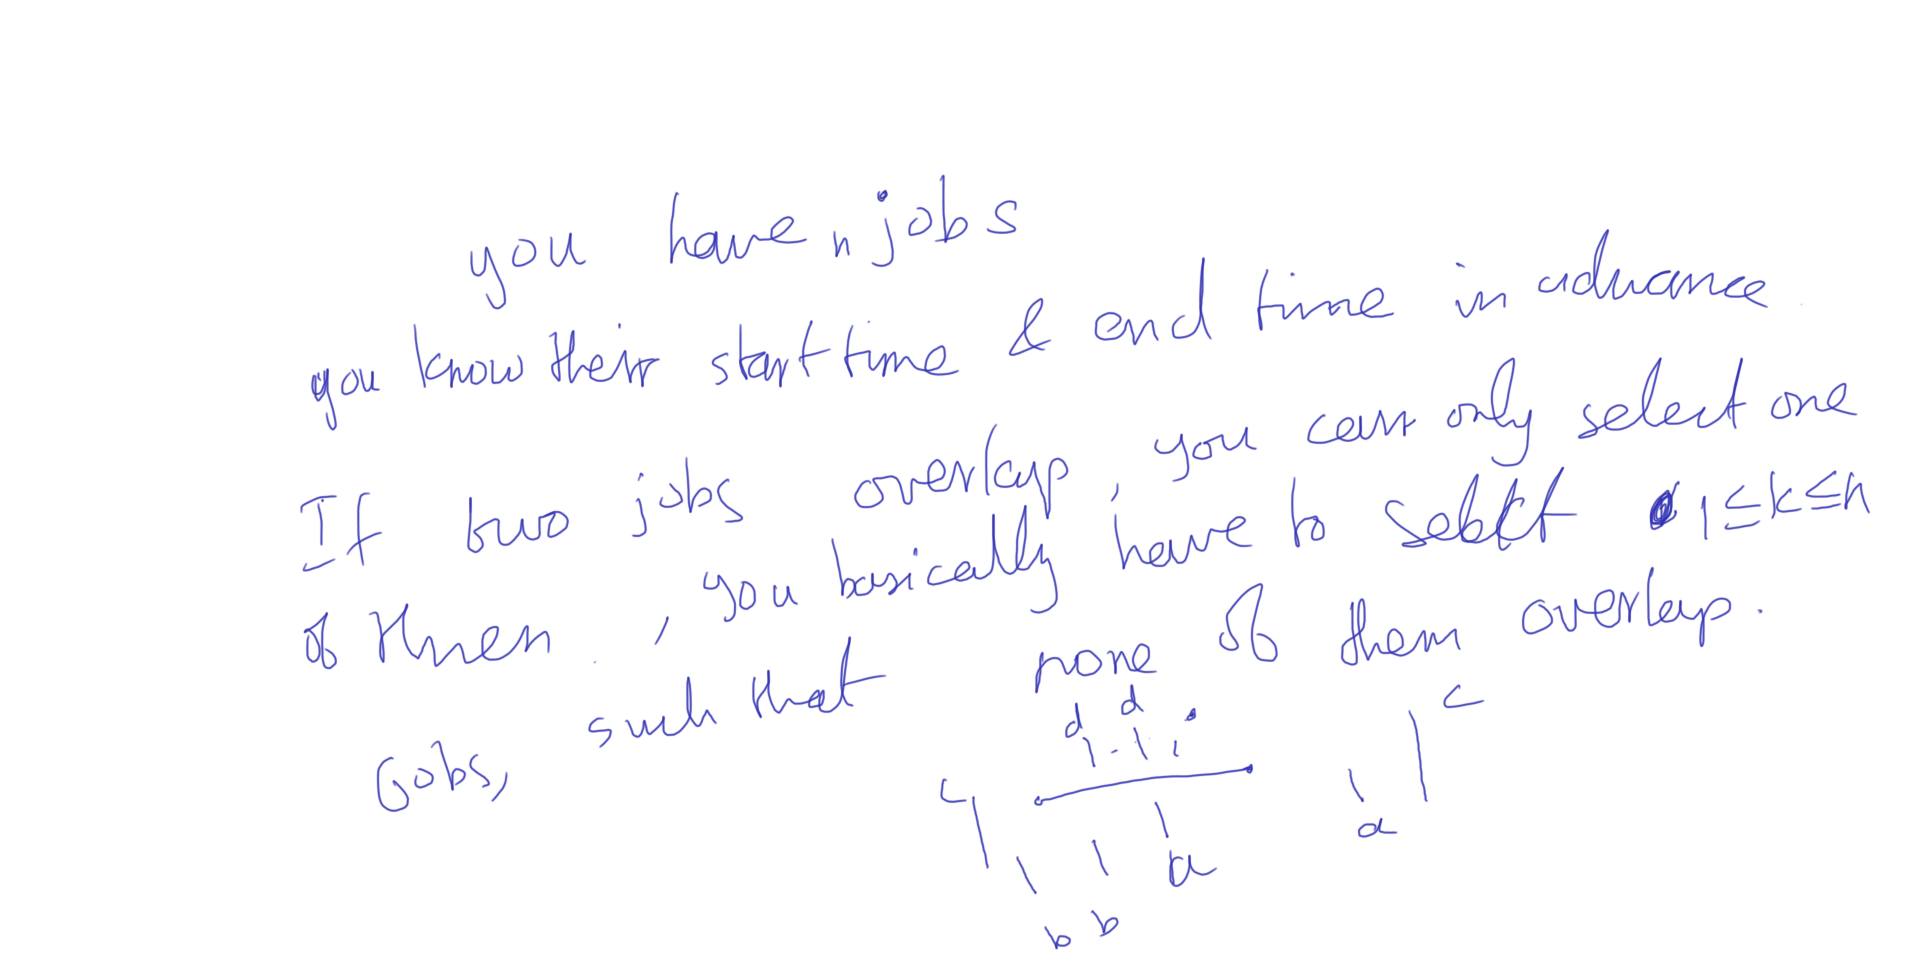 you have n jobs
you know their start time & end time in advance
If two jobs overlap, you can only select one
of them, you basically have to select 1≤k≤n
jobs, such that none of them overlap.
d d
c c
a a
b b